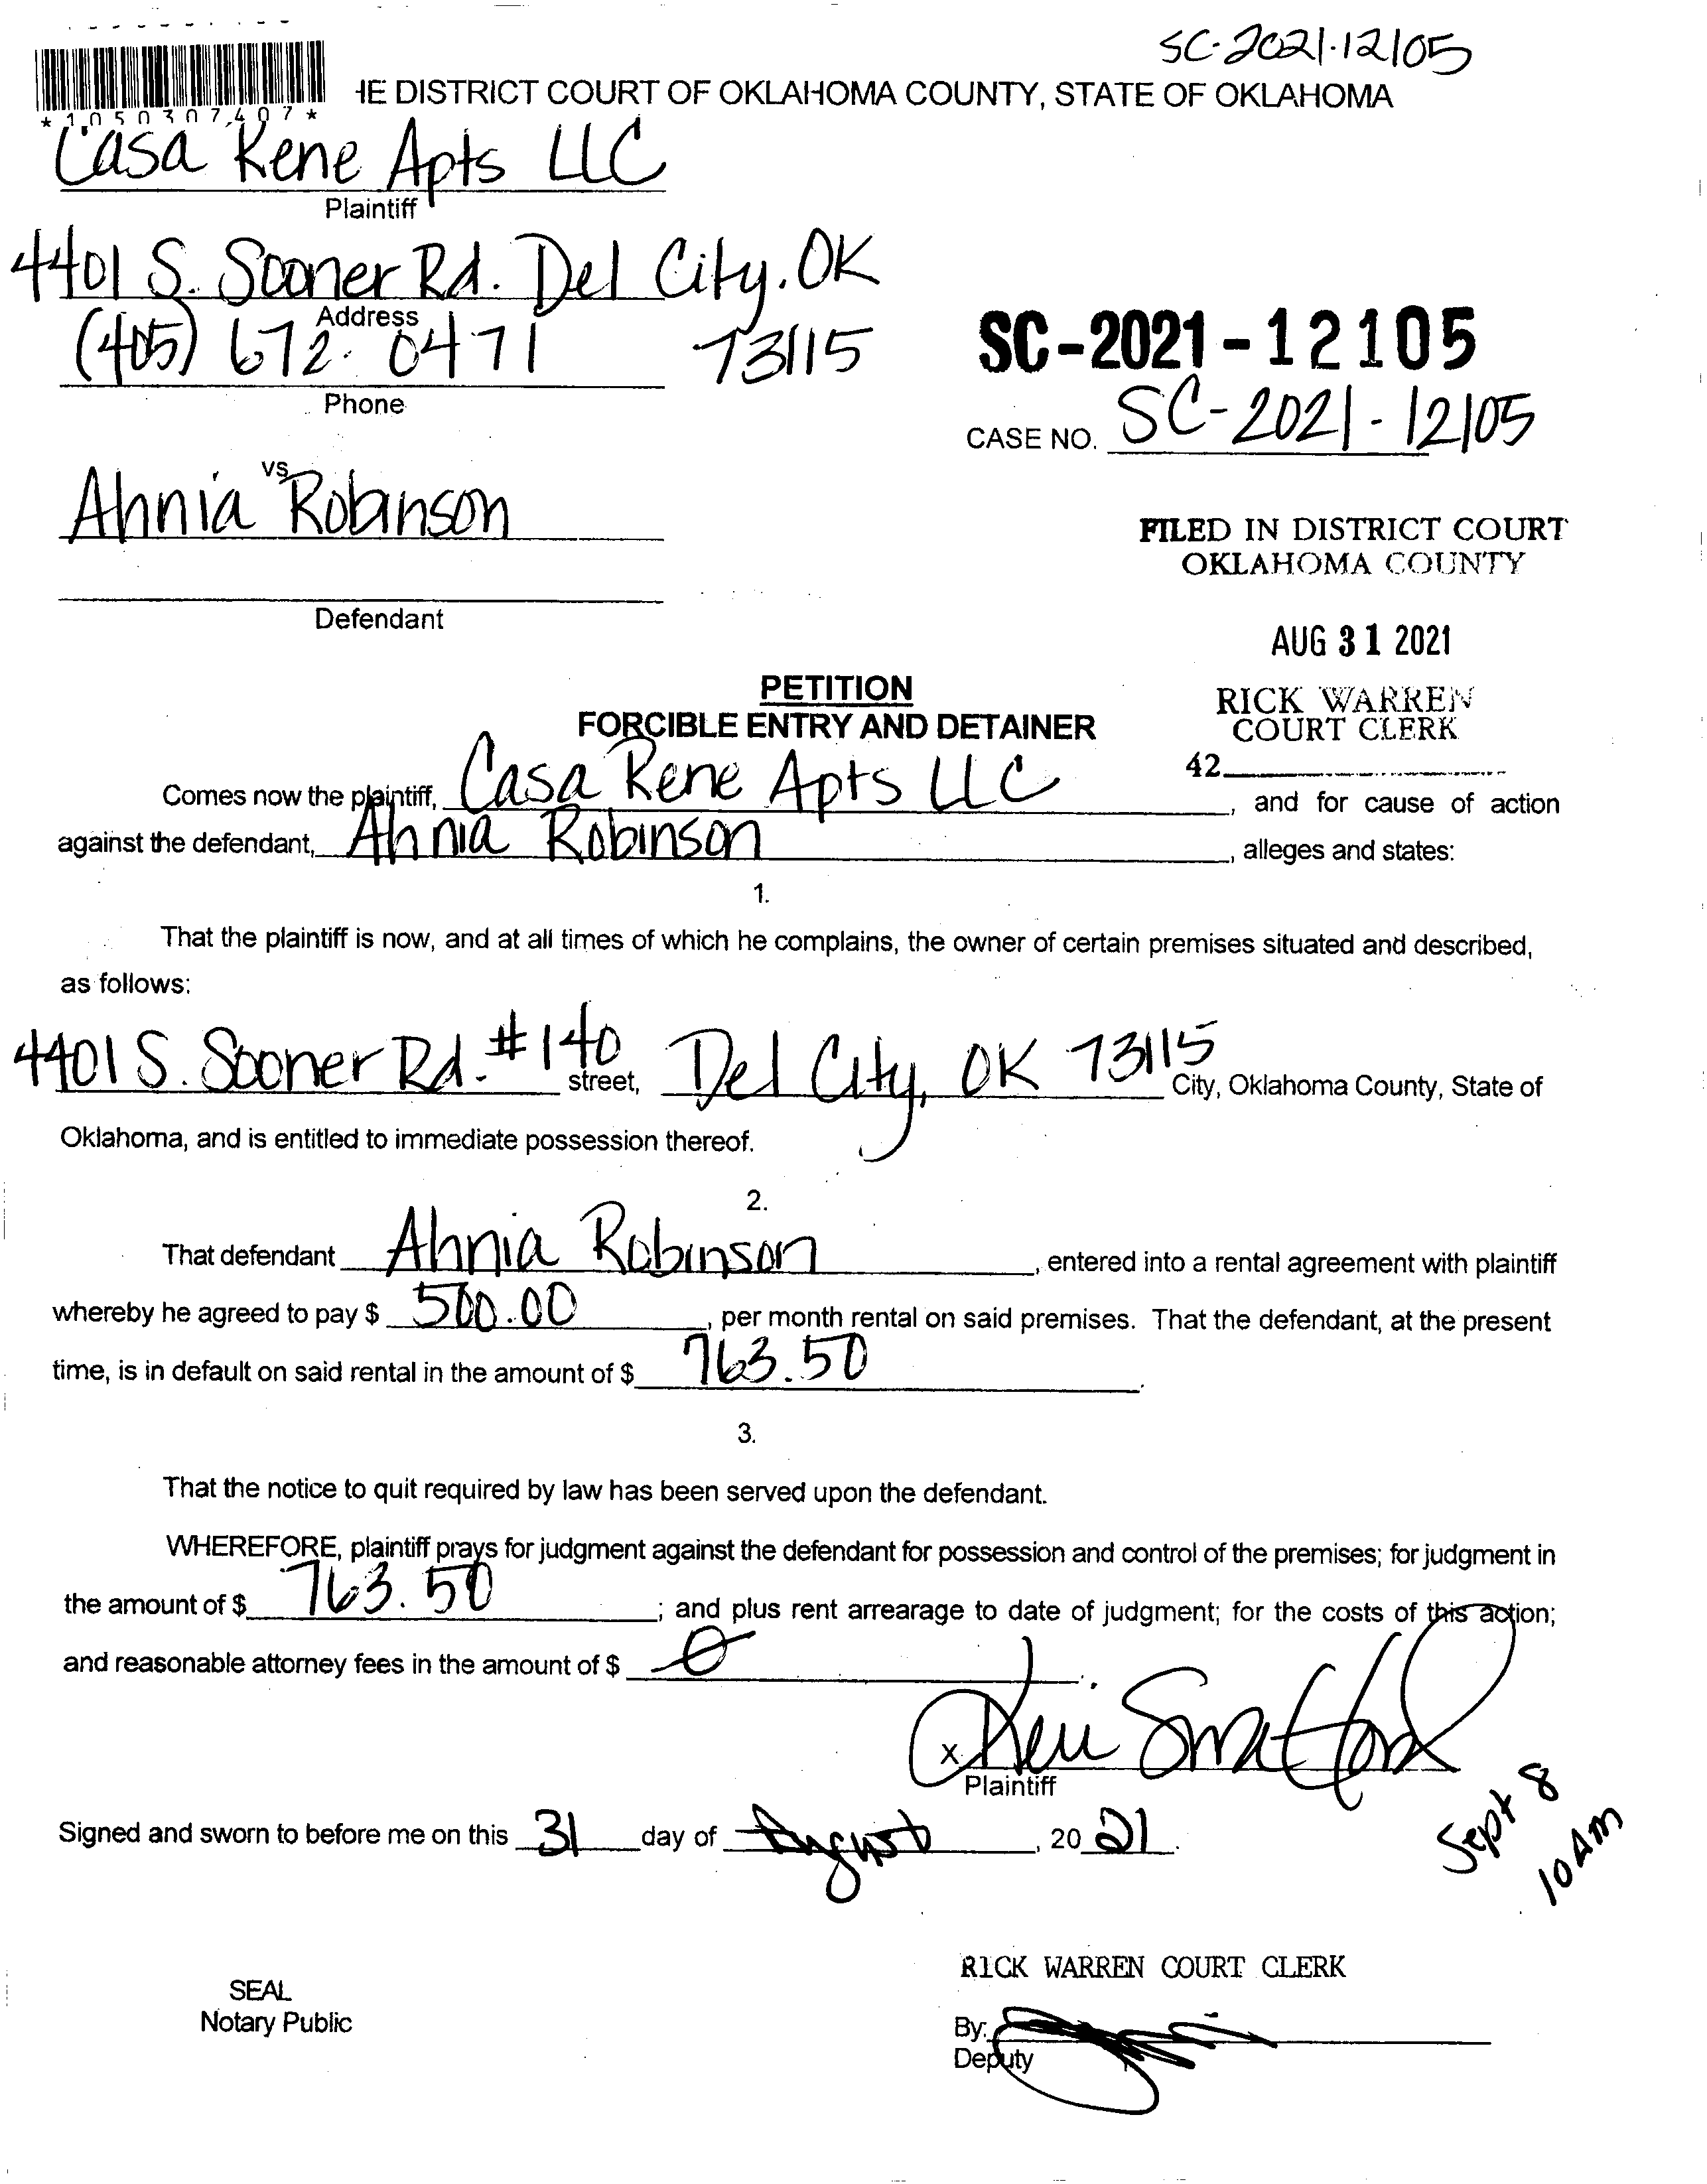 SC-2021-12105
HE DISTRICT COURT OF OKLAHOMA COUNTY, STATE OF OKLAHOMA
*1050307407*
Casa Rene Apts LLC
Plaintiff
4401 S. Sooner Rd. Del City, OK
Address
(405) 672-0471 73115
Phone
SC-2021-12105
CASE NO. SC-2021-12105
vs
Ahnia Robinson
Defendant
FILED IN DISTRICT COURT
OKLAHOMA COUNTY
AUG 31 2021
RICK WARREN
COURT CLERK
42
PETITION
FORCIBLE ENTRY AND DETAINER
Comes now the plaintiff, Casa Rene Apts LLC, and for cause of action
against the defendant, Ahnia Robinson, alleges and states:
1.
That the plaintiff is now, and at all times of which he complains, the owner of certain premises situated and described,
as follows:
4401 S. Sooner Rd. #140 street, Del City, OK 73115 City, Oklahoma County, State of
Oklahoma, and is entitled to immediate possession thereof.
2.
That defendant Ahnia Robinson, entered into a rental agreement with plaintiff
whereby he agreed to pay $ 500.00, per month rental on said premises. That the defendant, at the present
time, is in default on said rental in the amount of $ 763.50.
3.
That the notice to quit required by law has been served upon the defendant.
WHEREFORE, plaintiff prays for judgment against the defendant for possession and control of the premises; for judgment in
the amount of $ 763.50; and plus rent arrearage to date of judgment; for the costs of this action;
and reasonable attorney fees in the amount of $ 0.
x
Plaintiff
Signed and sworn to before me on this 31 day of August, 20 21.
Sept 8
10 AM
RICK WARREN COURT CLERK
SEAL
Notary Public
By:
Deputy